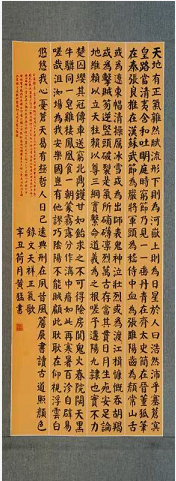 天地有正氣雜然賦流形下則為河嶽上則為日星於人曰浩然沛乎塞蒼冥
皇路當清夷含和吐明庭時窮節乃見一一垂丹青在齊太史簡在晉董狐筆
在秦張良椎在漢蘇武節為嚴將軍頭為嵇侍中血為張睢陽齒為顏常山舌
或為遼東帽清操厲冰雪或為出師表鬼神泣壯烈或為渡江楫慷慨吞胡羯
或為擊賊笏逆豎頭破裂是氣所磅礴凜烈萬古存當其貫日月生死安足論
地維賴以立天柱賴以尊三綱實繫命道義為之根嗟予遘陽九隸也實不力
楚囚纓其冠傳車送窮北鼎鑊甘如飴求之不可得陰房闃鬼火春院閟天黑
牛驥同一皂雞棲鳳凰食一朝蒙霧露分作溝中瘠如此再寒暑百沴自辟易
嗟哉沮洳場為我安樂國豈有他繆巧陰陽不能賊顧此耿耿在仰視浮雲白
悠悠我心憂蒼天曷有極哲人日已遠典刑在夙昔風簷展書讀古道照顏色
錄文天祥正氣歌
辛丑荷月黃猛書